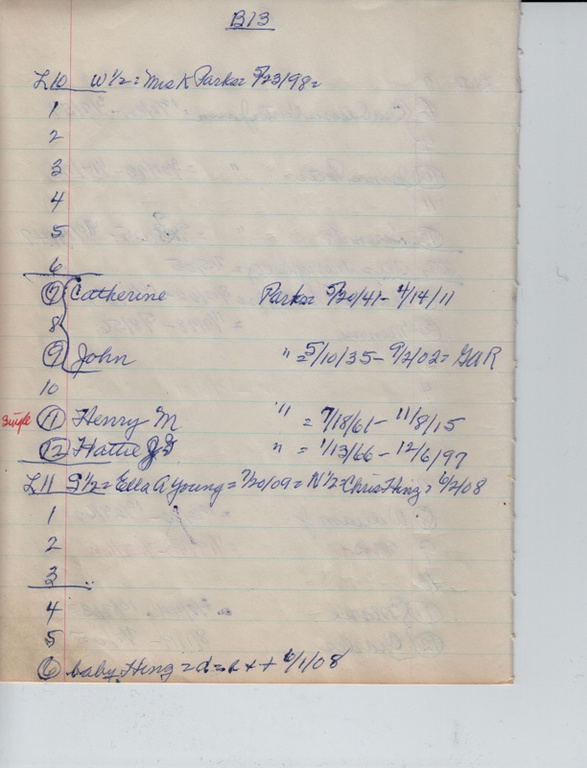 B13
L10 W 1/2 = Mrs K Parks = 5/23/98 =
1
2
3
4
5
6
7 Catherine Parks = 5/20/41 - 4/14/11
8
9 John " = 5/10/35 - 9/2/02 = GAR
10
single 11 Henry M " = 7/18/61 - 11/8/15
12 Hattie " = 1/13/66 - 12/6/97
L11 S 1/2 = Ella A Young = 7/20/09 = N 1/2 = Chris Hing = 6/2/08
1
2
3
4
5
6 baby Hing = d = 6/1/08